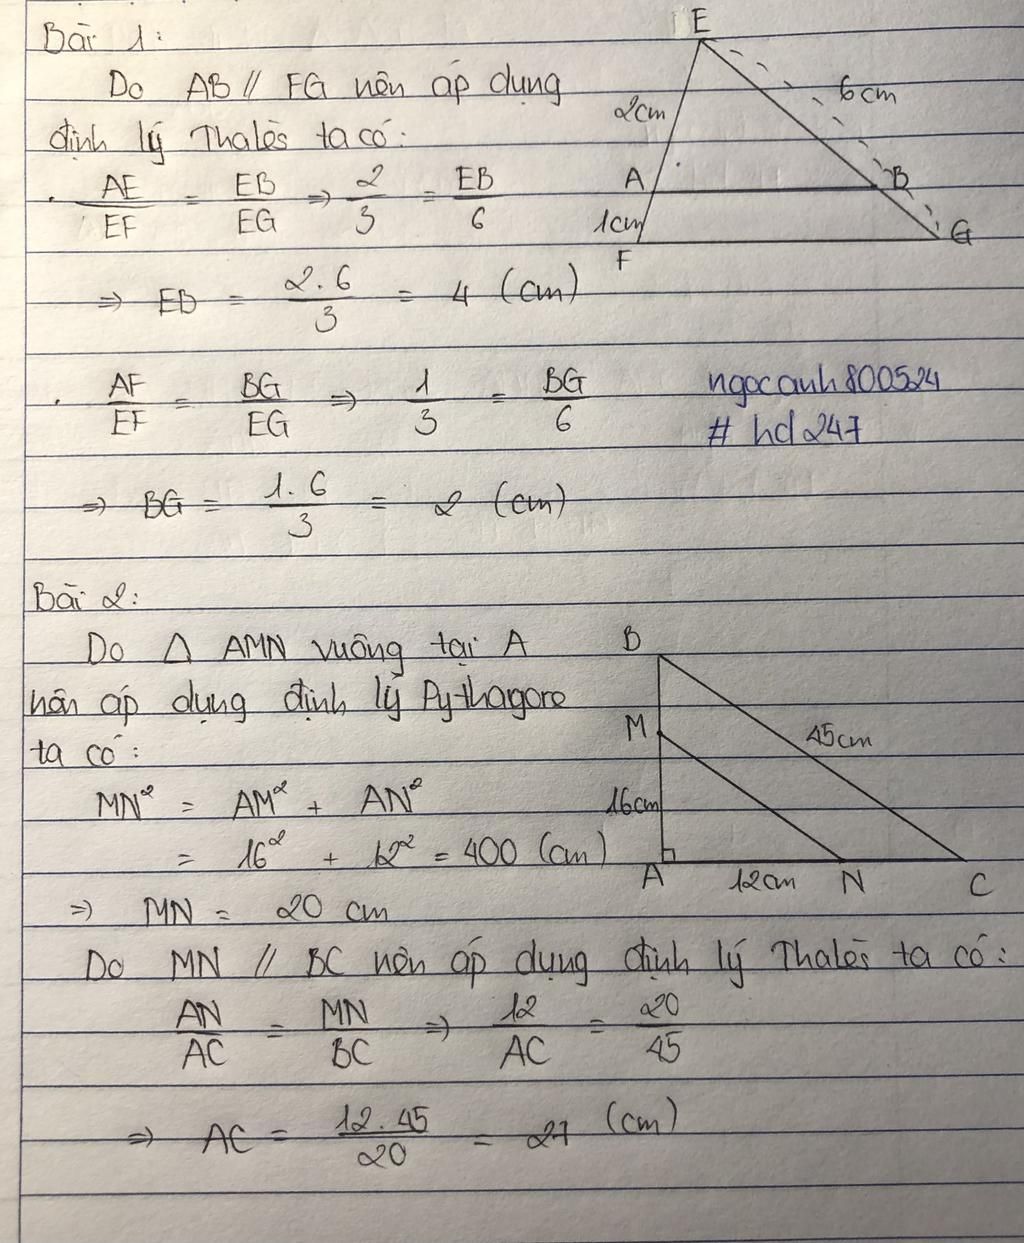 Bài 1:
Do AB // FG nên áp dụng
định lý Thalès ta có:
. AE/EF = EB/EG ⇒ 2/3 = EB/6
⇒ EB = 2.6/3 = 4 (cm)
. AF/EF = BG/EG ⇒ 1/3 = BG/6
⇒ BG = 1.6/3 = 2 (cm)
E
2cm
6cm
A
B
1cm
F
G
ngocanh800524
# hd247
Bài 2:
Do Δ AMN vuông tại A
nên áp dụng định lý Pythagore
ta có:
MN² = AM² + AN²
= 16² + 12² = 400 (cm)
⇒ MN = 20 cm
B
M
45cm
16cm
A
12cm
N
C
Do MN // BC nên áp dụng định lý Thalès ta có:
AN/AC = MN/BC ⇒ 12/AC = 20/45
⇒ AC = 12.45/20 = 27 (cm)